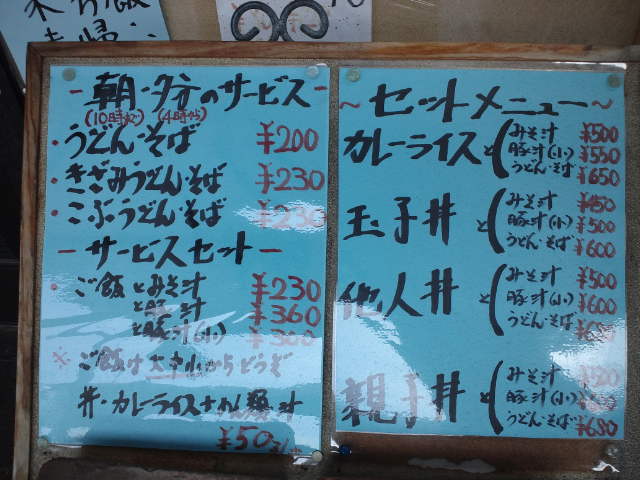 朝・夕方のサービス
(10時まで) (4時から)
・うどん・そば ¥200
・きざみうどん・そば ¥230
・こぶうどん・そば ¥230
ーサービスセットー
・ご飯とみそ汁 ¥230
と豚汁 ¥360
と豚汁(小) ¥300
※ご飯は大中小からどうぞ
丼・カレーライス
¥50
～セットメニュー～
カレーライスと みそ汁 ¥500
豚汁(小) ¥550
うどん・そば ¥650
玉子丼と みそ汁 ¥450
豚汁(小) ¥500
うどん・そば ¥600
他人丼と みそ汁 ¥500
豚汁(小) ¥600
うどん・そば
親子丼と みそ汁
豚汁(小)
うどん・そば ¥680